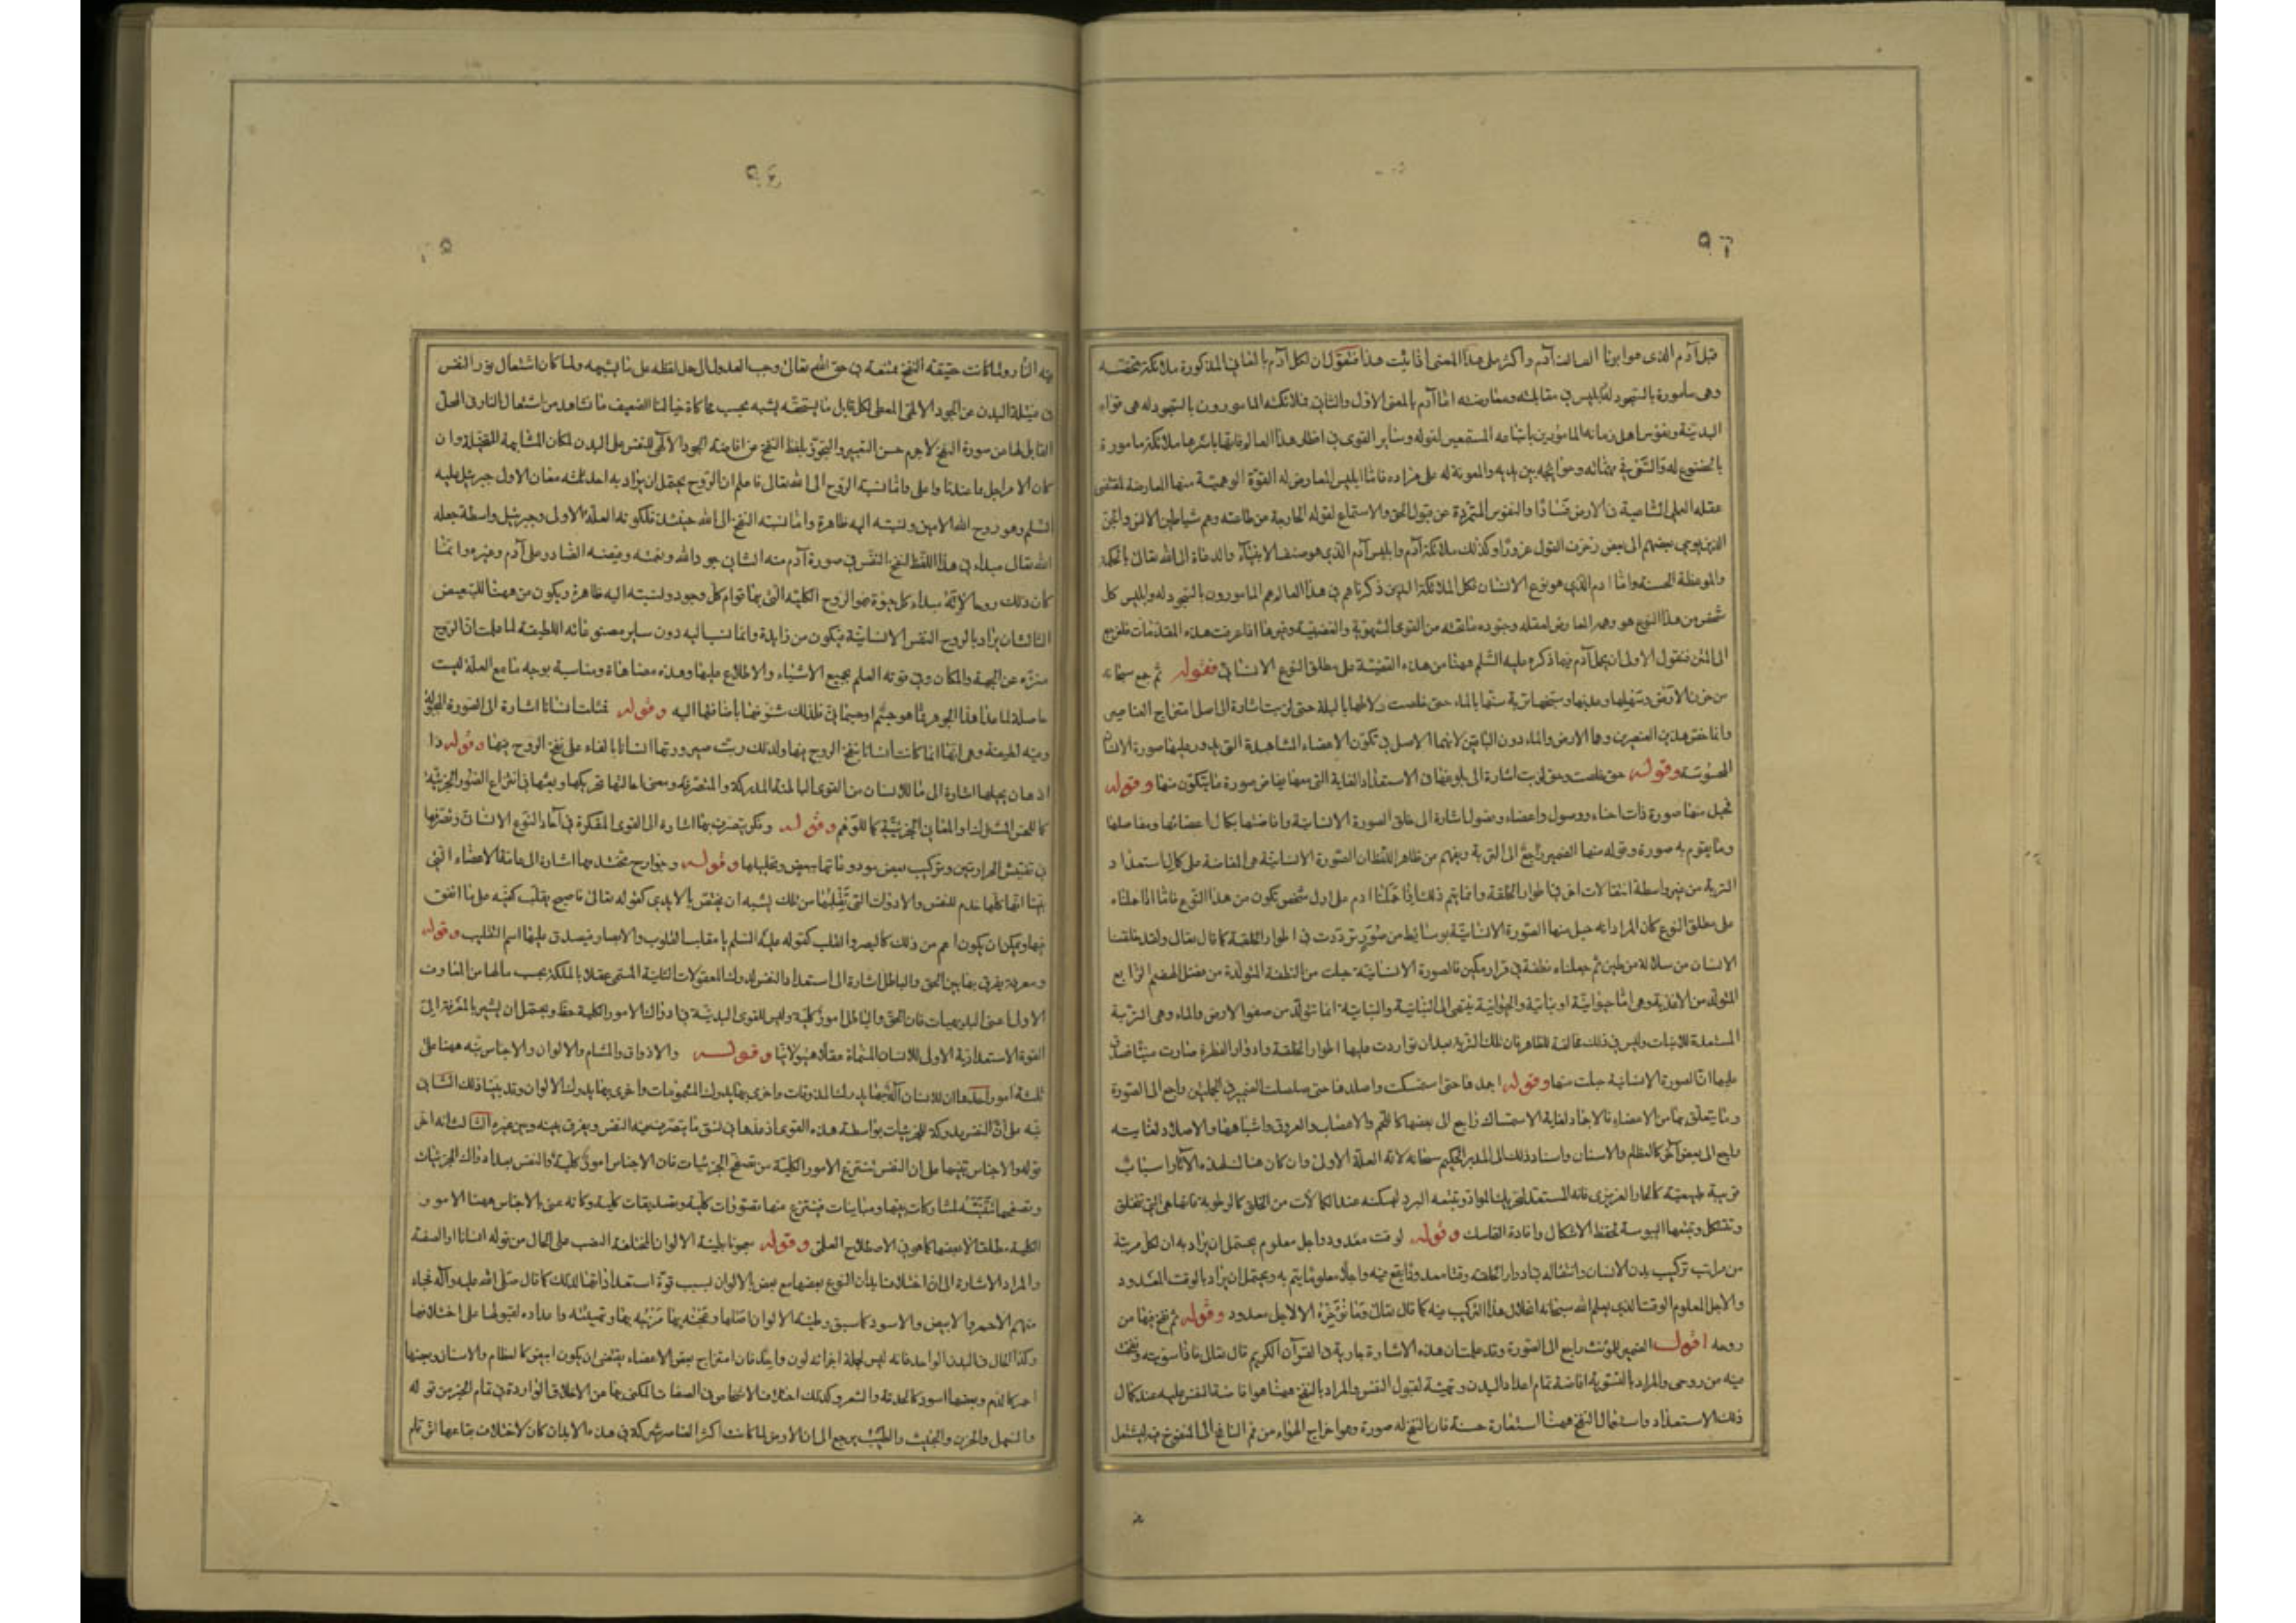 ٩٦
قبل آدم الذى هو ابونا الف الف آدم واكثر وعلى هذا المعنى اذا ثبت هذا فنقول ان لكل آدم بالمعانى المذكورة ملائكة تخصّه
وهى مأمورة بالسّجود له وابليس فى مقابلته ومعارضته امّا آدم بالمعنى الاوّل والثانى فملائكته المأمورون بالسّجود له هى قواه
البدنيّة ونفوس اهل زمانه المأمورين باتباعه المستمعين لقوله وساير القوى فى اقطار هذا العالم فانها باسرها ملائكة مامورة
بالخضوع له والسّعى فى مهمّاته وحوائجه بين يديه والمعونة له على مراده فامّا ابليس المعارض له القوّة الوهميّة منها المعارضة لمقتضى
عقله العملى الساعية فى الارض فسادًا والنفوس المتمرّدة عن قبول الحق والاستماع لقوله الخارجة من طاعته وهم شياطين الانس والجنّ
الذين يوحى بعضهم الى بعض زخرف القول غرورًا وكذلك ملائكة آدم وابليس آدم الذى هو صنف الانبياء والدعاة الى الله تعالى بالحكمة
والموعظة الحسنة وامّا آدم الذى هو نوع الانسان فكل الملائكة الذين ذكرناهم فى هذا العالم هم المأمورون بالسّجود له وابليس كل
شخص من هذا النوع هو وهمه المعارض لعقله وجنوده ما تحته من القوى الشهويّة والغضبيّة وغيرها اذا عرفت هذه المقدّمات فلنرجع
الى المتن فنقول الاولى ان يحمل آدم فيما ذكره عليه السّلم ههنا من هذه القصّة على مطلق النوع الانسانى فقوله ثم جمع سبحانه
من حزن الارض وسهلها وعذبها وسبخها تربة سنّها بالماء حتى خلصت ولاطها بالبلّة حتى لزبت اشارة الى اصل امتزاج العناصر
وانما خصّ هذين العنصرين وهما الارض والماء دون الباقين لانهما الاصل فى تكوّن الاعضاء المشاهدة التى يدور عليها صورة الانسان
المحسوسة وقوله حتى خلصت وحتى لزبت اشارة الى بلوغها فى الاستعداد الغاية التى معها يفاض صورة ما يتكوّن منها وقوله
فجبل منها صورة ذات احناء ووصول واعضاء وفصول اشارة الى خلق الصورة الانسانية وافاضتها بكمال اعضائها ومفاصلها
وما يقوم به صورة وقوله منها الضمير راجع الى التربة ويفهم من ظاهر اللفظ ان الصّورة الانسانيّة هى المفاضة على كمال استعداد
التربة من غير واسطة انتقالات اخر فى اطوار الخلقة وانما يتم ذلك اذا حملنا آدم على اول شخص تكون من هذا النوع فامّا اذا حملناه
على مطلق النوع كان المراد انه جبل منها الصّورة الانسانيّة بوسائط من صُوَرٍ تردّدت فى اطوار الخلقة كما قال تعالى ولقد خلقنا
الانسان من سلالة من طين ثم جعلناه نطفة فى قرار مكين فالصورة الانسانيّة جبلت من النطفة المتولّدة من فضل الهضم الرابع
المتولّد من الاغذية وهى امّا حيوانيّة او نباتيّة والحيوانية ينتهى الى النّباتيّة والنباتيّة انما تتولّد من صفو الارض والماء وهى التربة
المستعدة للانبات وليس فى ذلك مخالفة للظاهر فان تلك التربة بعد ان تواردت عليها اطوار الخلقة وادوار الفطرة صارت منيًّا فصدق
عليها انّ الصورة الانسانية جبلت منها وقوله اجمدها حتى استمسكت واصلدها حتى صلصلت الضمير فى الجملتين راجع الى الصّورة
وما يتعلّق بها من الاعضاء فالاجماد لغاية الاستمساك راجع الى بعضها كاللحم والاعصاب والعروق واشباهها والاصلاد لغايته
راجع الى بعض آخر كالعظام والاسنان واسناد ذلك الى المدبر الحكيم سبحانه لانه العلّة الاولى وان كان هناك لهذه الآثار اسباب
قريبة طبيعيّة كالحار الغريزى فانه المستعد لتحريك المواد وتبعه البرد ليمسكه عند الكمالات من الخلق كالرطوبة فانها هى التى تتخلّق
وتتشكل وتتبعها اليبوسة لحفظ الاشكال وافادة التماسك وقوله لوقت معدود واجل معلوم يحتمل ان يراد به ان لكل مرتبة
من مراتب تركيب بدن الانسان وانتقاله فى ادوار الخلقة وقتًا معدودًا يقع فيه واجلًا معلومًا يتم به ويحتمل ان يراد بالوقت المعدود
والاجل المعلوم الوقت الذى يعلم الله سبحانه انحلال هذا التركيب فيه كما قال تعالى وما نُؤَخِّرُه الّا لاجل معدود وقوله ثم نفخ فيها من
روحه اقول الضمير المؤنث راجع الى الصّورة وقد علمت ان هذه الاشارة جارية فى القرآن الكريم قال تعالى فاذا سويته ونفخت
فيه من روحى والمراد بالتسوية افاضة تمام اعداد البدن وتهيئة لقبول النفس والمراد بالنفخ ههنا هو افاضة النفس عليه عند كمال
ذلك الاستعداد واستعمال النفخ ههنا استعارة حسنة فان النفخ له صورة وهو اخراج الهواء من فم النافخ الى المنفوخ فيه ليشتعل
٩٤
فيه النّار ولمّا كانت حقيقة النفخ ممتنعة فى حق الله تعالى وجب العدول الى حمل لفظه على ما يشبهه ولما كان اشتعال نور النفس
فى فتيلة البدن عن الجود الالهى المعطى لكل قابل ما يستحقّه يشبه بحسب محاكاة خيالنا الضعيف ما نشاهد من اشتعال النار فى المحلّ
القابل لها من صورة النفخ لا جرم حسن التعبير والتجوّز بلفظ النفخ عن افاضة الجود الالهى للنفس على البدن لمكان المشابهة المتخيّلة وان
كان الامر اجل مما عندنا واعلى وامّا نسبة الرّوح الى الله تعالى فاعلم ان الرّوح يحتمل ان يراد به احد ثلثة معان الاول جبرئيل عليه
السّلم وهو روح الله الامين ونسبته اليه ظاهرة وامّا نسبة النفخ الى الله حينئذ فلكونه العلّة الاولى وجبرئيل واسطة جعله
الله تعالى مبداء فى هذا اللفظ لنفخ النفس فى صورة آدم منه الثانى جود الله ونعمته وفيضه الصّادر على آدم وغيره وانّما
كان ذلك روحا لانّه مبداء كل حيوة فهو الروح الكليّة التى بها قوام كلّ وجود ونسبته اليه ظاهرة ويكون من ههنا للتبعيض
الثالث ان يراد بالروح النفس الانسانيّة فيكون من زايدة وانما نسبها اليه دون ساير مصنوعاته اللطيفة لما علمت انّ الروح
منزّه عن الجهة والمكان وفى قوته العلم بجميع الاشياء والاطلاع عليها وهذه مضاهاة ومناسبة بوجه ما مع العلّة ليست
حاصلة لما عدا هذا الجوهر ممّا هو جسم او جسمانىّ فلذلك شرّفها باضافتها اليه وقوله فمثلت انسانا اشارة الى الصّورة المخلوقة
وفيه لطيفة وهى انّها انما كانت انسانا بنفخ الروح فيها ولذلك رتّب صيرورتها انسانا بالفاء على نفخ الروح فيها وقوله ذا
اذهان يجيلها اشارة الى ما للانسان من القوى الباطنة المدركة والمتصرّفة ومعنى اجالتها تحريكها وبعثها فى انتزاع الصّور الجزئيّة
كما للحسّ المشترك او المعانى الجزئيّة كما للوهم وقوله وفكر يتصرّف بها اشارة الى القوى المفكرة فى آحاد النّوع الانسانى وتصرّفها
فى تفتيش الخزانتين وتركيب بعض مودوعاتها ببعض وتحليلها وقوله وجوارح يختدمها اشارة الى عامّة الاعضاء التى
بيّنا انّها كلّها خدم للنفس والادوات التى تُقَلِّبُهَا من تلك يشبه ان يختصّ بالايدى كقوله تعالى فاصبح يقلّب كفّيه على ما انفق
فيها ويمكن ان يكون اعم من ذلك كالبصر والقلب كقوله عليه السّلم يا مقلب القلوب والابصار فيصدق عليها اسم التقليب وقوله
ومعرفة يفرق بها بين الحق والباطل اشارة الى استعداد النفس لدرك المعقولات الثانية المسمّى عقلا بالملكة بحسب ما لها من المعارف
الاولى اعنى البديهيات فان الحقّ والباطل امور كليّة وليس للقوى البدنيّة فى ادراك الامور الكلية حظ ويحتمل ان يشير بالمعرفة الى
القوة الاستعداديّة الاولى للانسان المسمّاة عقلًا هيولانيًّا وقوله والاذواق والمشام والالوان والاجناس نبّه ههنا على
ثلثة امور احدها ان للانسان آلة بها يدرك المذوقات واخرى بها يدرك المشمومات واخرى بها يدرك الالوان وقد بيّنا ذلك الثانى
نبّه على انّ النفس مدركة للجزئيات بواسطة هذه القوى اذ عدّها فى نسق ما يتصرّف فيه النفس ويفرق بينه وبين غيره الثالث انه اخّر
قوله والاجناس تنبيها على ان النفس تنتزع الامور الكليّة من تصفّح الجزئيات فان الاجناس امور كليّة والنفس بعد ادراك الجزئيات
وتصفحها تتنبّه لمشاركات بينها ومباينات فينتزع منها تصوّرات كليّة وتصديقات كلية وكانه عنى بالاجناس ههنا الامور
الكلية مطلقا لا بعضها كما هو فى الاصطلاح العلمى وقوله معجونا بطينة الالوان المختلفة النصب على الحال من قوله انسانا او الصفة
والمراد الاشارة الى ان اختلاف ابدان النوع بعضها مع بعض بالالوان بسبب قوّة استعداداتها لذلك كما قال صلّى الله عليه وآله فجاء
منهم الاحمر والابيض والاسود كما سبق وطينة الالوان اصلها وعجنه بها مزجه بها وتهيئته واعداده لقبولها على اختلافها
وكذا الحال فى البدن الواحد فانه ليس لجملة اجزائه لون واحد فان امتزاج بعض الاعضاء يقتضى ان يكون ابيض كالعظام والاسنان وبعضها
احمر كالدم وبعضها اسود كالحدقة والشعر وكذلك اختلاف الاشخاص فى الصفات المكنى بها عن الاخلاق الواردة فى تمام الخبر من قوله
والسهل والحزن والخبيث والطيّب يرجع الى ان الارض لما كانت اكثر العناصر شركة فى هذه الابدان كان لاختلاف بقاعها اثر تام